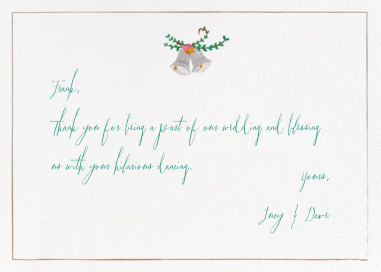 Frank,
Thank you for being a part of our wedding and blessing
us with your hilarious dancing.
Yours,
Lucy & Dave